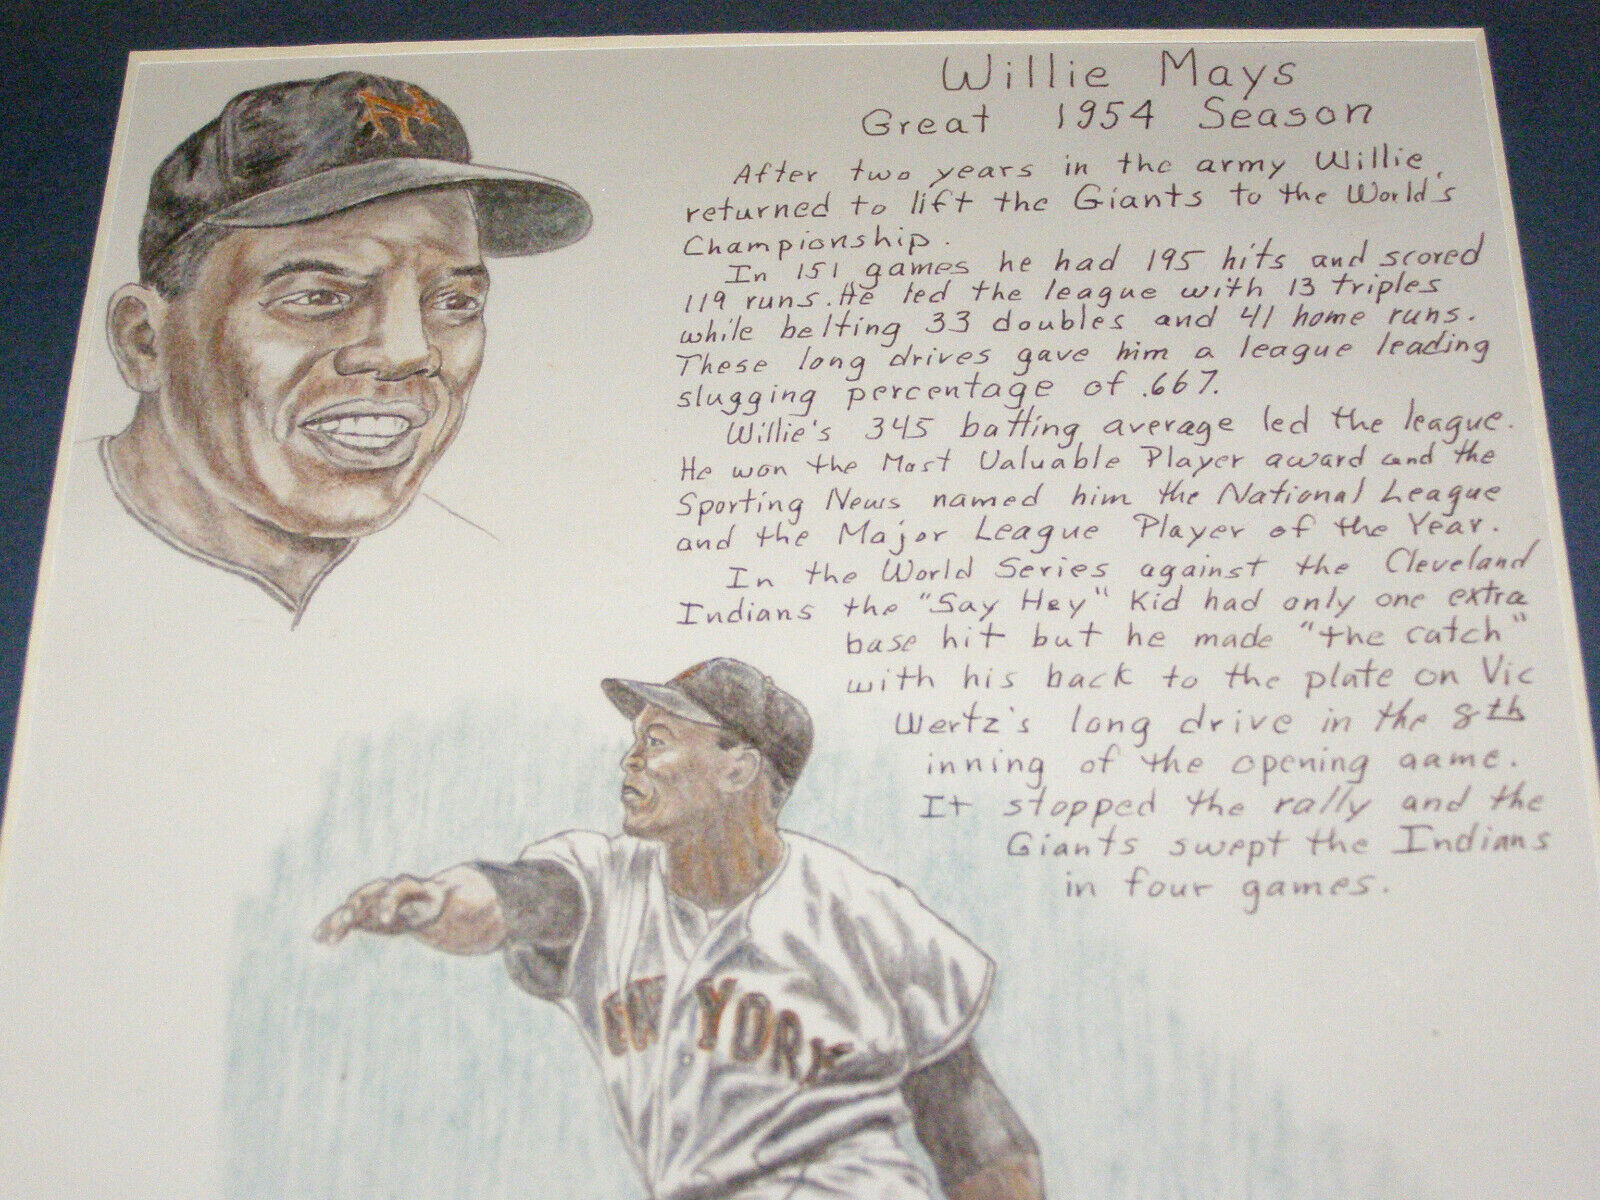 Willie Mays
Great 1954 Season
After two years in the army Willie
returned to lift the Giants to the World's
Championship.
In 151 games he had 195 hits and scored
119 runs. He led the league with 13 triples
while belting 33 doubles and 41 home runs.
These long drives gave him a league leading
slugging percentage of .667.
Willie's 345 batting average led the league.
He won the Most Valuable Player award and the
Sporting News named him the National League
and the Major League Player of the Year.
In the World Series against the Cleveland
Indians the "Say Hey" Kid had only one extra
base hit but he made "the catch"
with his back to the plate on Vic
Wertz's long drive in the 8th
inning of the opening game.
It stopped the rally and the
Giants swept the Indians
in four games.
NY
NEW YORK